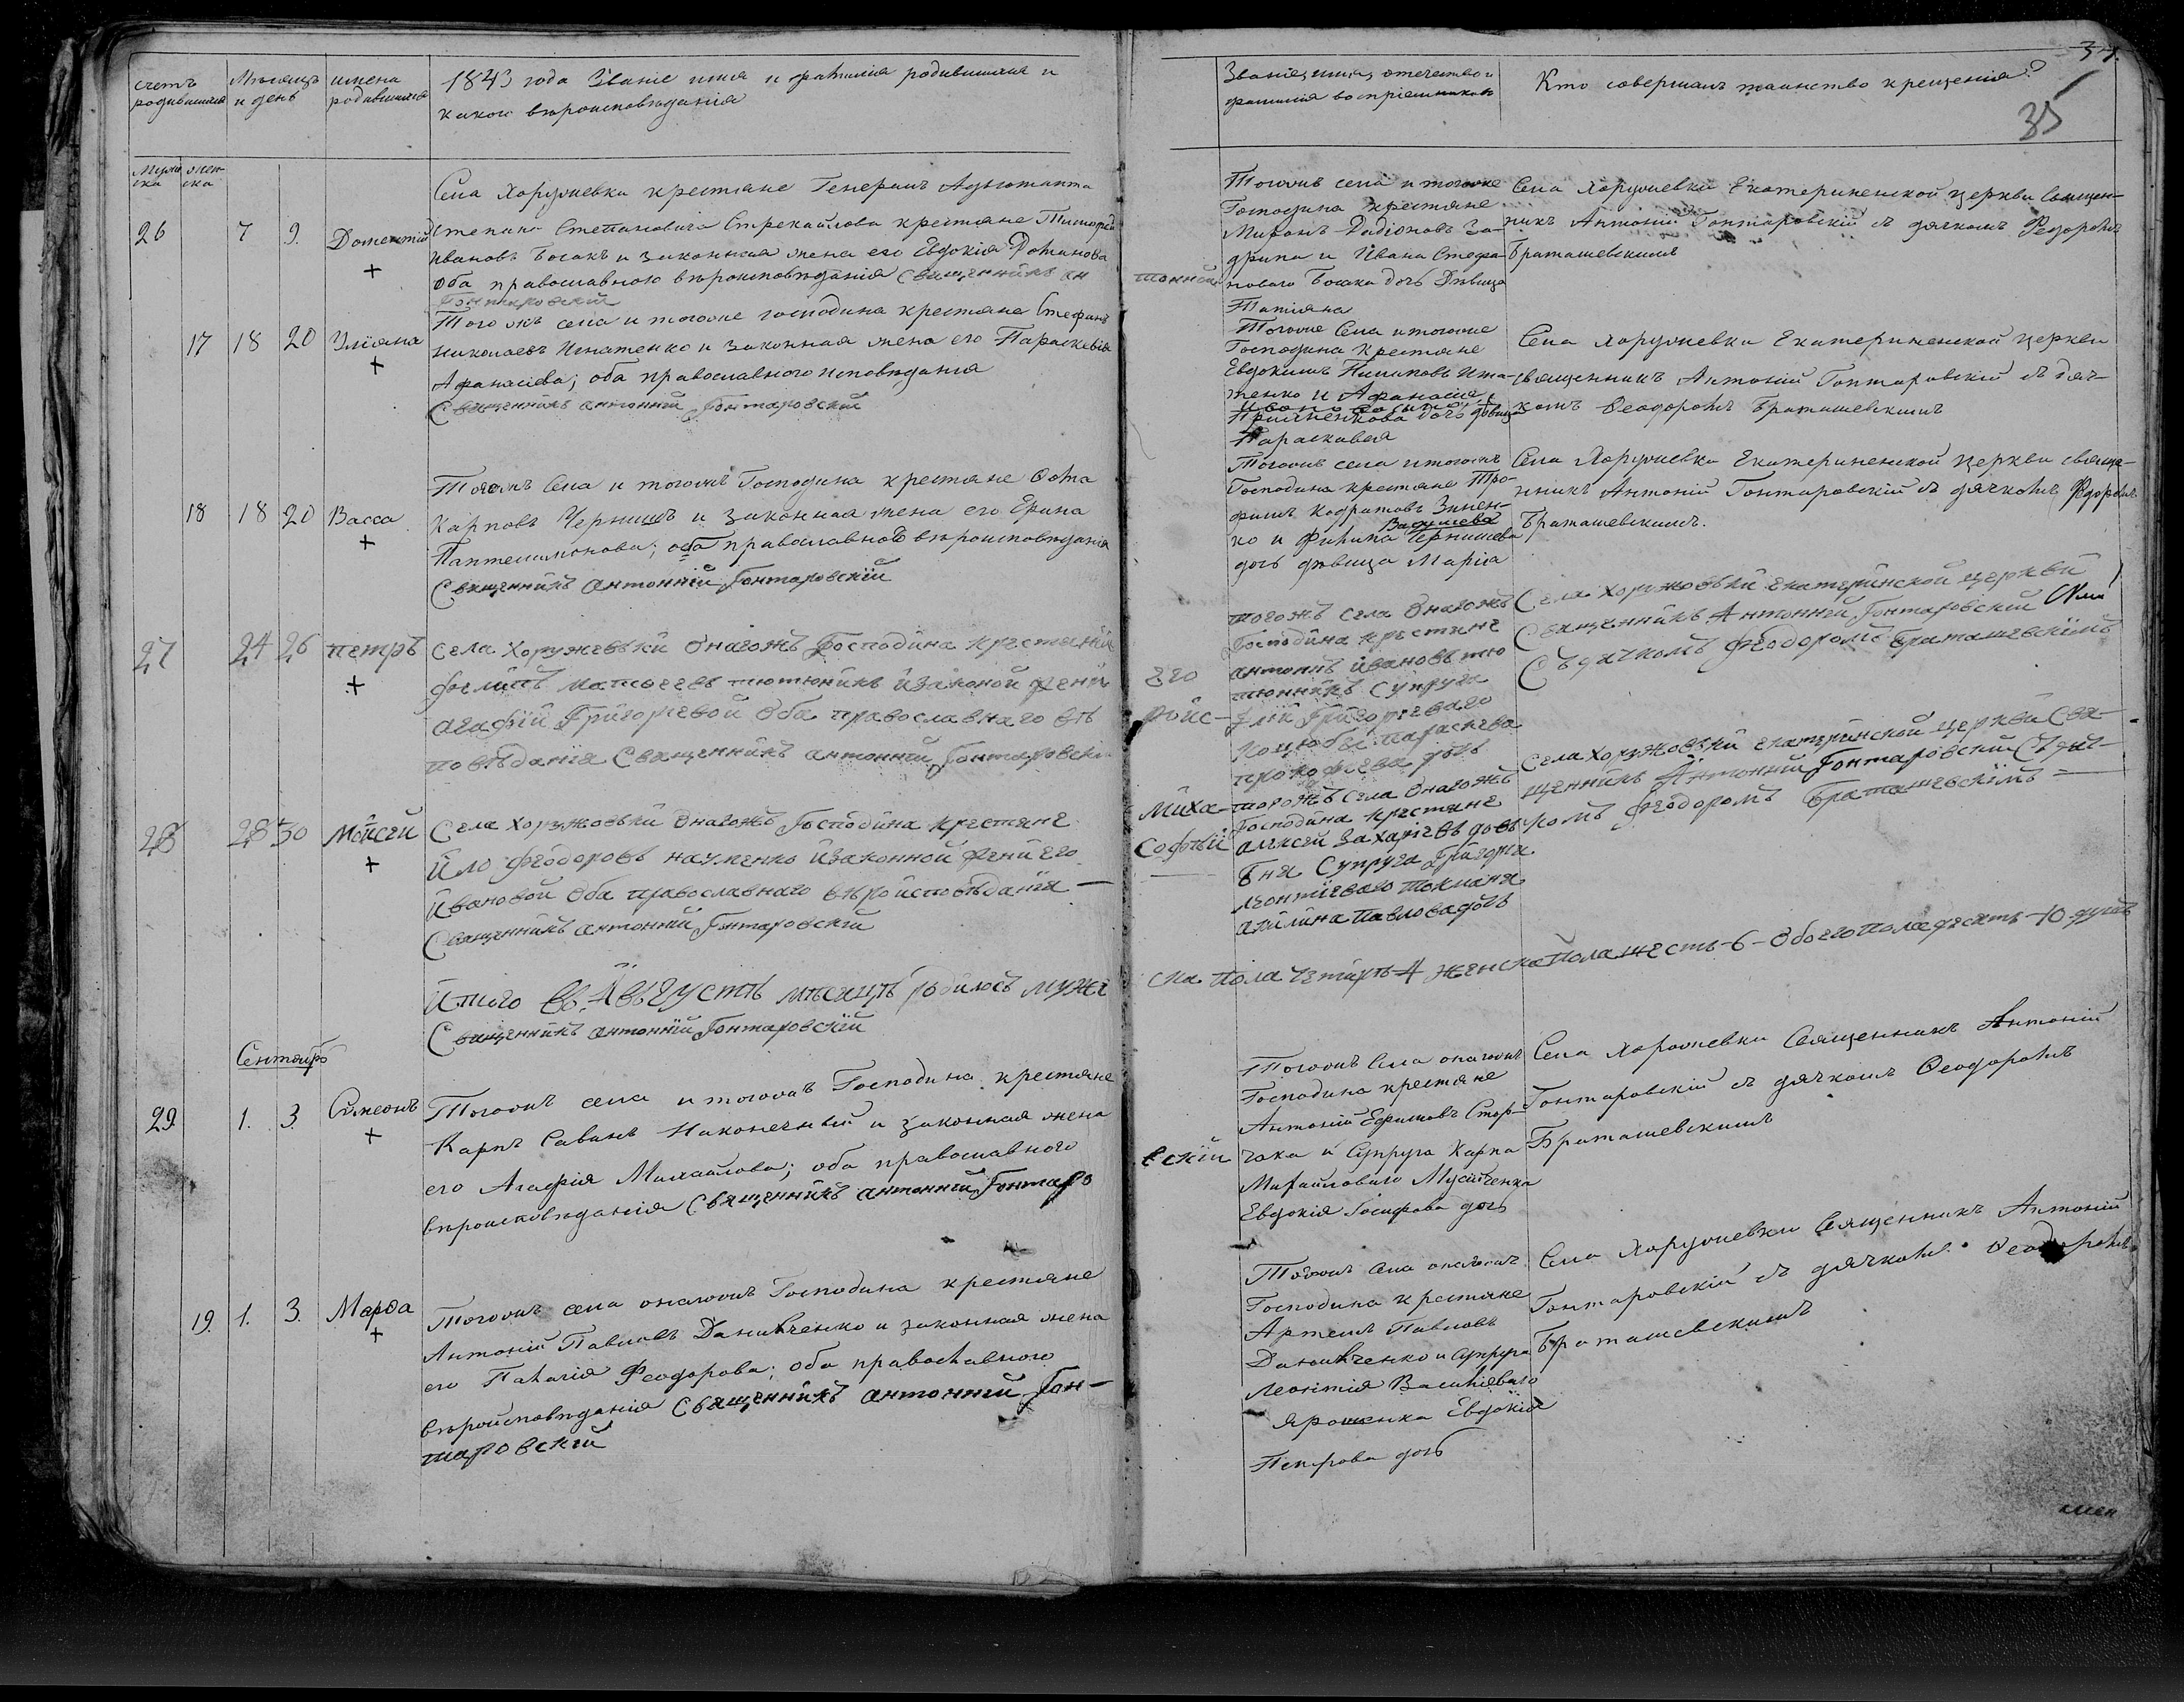 34.
35
счетъ родившихся
Мѣсяцъ и день
имена родившихся
1843 года Званіе имя и фамилія родившихся и
какого вѣроисповѣданія
Званіе, имя, отечество и
фамилія воспріемниковъ
Кто совершалъ таинство крещенія?
Муже
ска
жен
ска
26 7 9. Дометтій +
Села Хоружевки крестяне Генералъ Адъютанта
Степана Степановича Стрекалова крестяне Тимофей
Ивановъ Босакъ и законная жена его Евдокія Романова
оба православного вѣроисповѣданія Священникъ ан
тонній
Гонтаровскій
Тогожъ села и тогоже
Господина крестяне
Миронъ Радіоновъ
и Ивана Стефа-
нового Босака дочь Дѣвица
Татіяна
Села Хоружевки Екатериненской церкви Священ-
никъ Антоній Гонтаровскій съ дячкомъ Федоромъ
Браташевскимъ
17 18 20 Уліяна +
Того жъ села и тогоже господина крестяне Стефанъ
Николаевъ Игнатенко и законная жена его Параскевія
Афанасіева; оба православного исповѣданія
Священникъ антонній Гонтаровскій
Тогоже Села и тогоже
Господина крестяне
Евдокимъ Пилиповъ Игна-
тенко и Афанасія
дочь дѣвица
Параскавія
Села Хоружевки Екатериненской церкви
священникъ Антоній Гонтаровскій съ дяч-
комъ Ѳеодоромъ Браташевскимъ
18 18 20 Васса +
Тогожъ Села и тогожъ Господина крестяне Ѳома
Карповъ Чернишъ и законная жена его Ерина
Пантелимонова; оба православного вѣроисповѣданія
Священникъ антонній Гонтаровскій
Тогожъ села и тогожъ
Господина крестяне Тро-
фимъ Кодратовъ Зинен-
ко и Филипа Чернишева
дочь дѣвица Марія
Села Хоружевки Екатериненской церкви свяще-
нникъ Антоній Гонтаровскій съ дячкомъ Федоромъ
Браташевскимъ.
27 24 26 петръ +
Села Хоружевкй Онагожъ Господина крестяннй
Матвеевъ тютюнйкъ йзаконой женй
его
агафій Грйгорьевой Оба православнаго вѣ
ройс-
повѣданія Священникъ антонній Гонтаровскі
тогожъ села Онагожъ
Господйна крестяне
антонъ йвановъ тю
тюннйкъ Супруга
Грйгоріеваго
Коцюбы параскева
прокофіева дочь
Села Хоружовкй екатерйнской церквй
Священнйкъ Антонней Гонтаровскій
Съ дячкомъ Феодоромъ Браташевскймъ
28 28 30 Мойсей +
Села Хоружовкй Онагожъ Господйна крестяне
Мйха-
йло Феодоровъ науменко йзаконной женй его
Софъій
йвановой Оба православнаго вѣройсповѣданія —
Священнйкъ антонній Гонтаровскій
тогожъ села Онагожъ
Господина крестяне
алексей Захаріевъ довъ
бня Супруга Грйгорія
леонтіеваго токмана
акйлйна павлова дочь
Села Хоружовкй екатерйнской церквй Свя-
щеннйкъ Антонній Гонтаровскій Съ дяч-
комъ Феодоромъ Браташевскймъ
йтого въ Августѣ мѣсяцѣ родйлось муже
ска пола четйрѣ 4 женска пола шесть - 6 - Обоего пола десять - 10 душъ
Священнйкъ антонній Гонтаровскій
Сентябрь
29 1. 3. Симеонъ +
Тогожъ села и тогожъ Господина крестяне
Карпъ Савинъ Наконечный и законная жена
его Агафія Михайлова; оба православного
вѣроисповѣданія Священнйкъ антонній Гонтаро
вскій
Тогожъ Села онагожъ
Господина крестяне
Антоній Ефимовъ Стор-
чака и Супруга Карпа
Михайлового Мусійченка
Евдокія Іосифова дочь
Села Хоружевки Священникъ Антоній
Гонтаровскій съ дячкомъ Ѳеодоромъ
Браташевскимъ
19. 1. 3. Марѳа +
Тогожъ села онагожъ Господина крестяне
Антоній Павловъ Данильченко и законная жена
его Палагія Феодорова; оба православного
вѣройсповѣданія Священнйкъ антонній Гон-
таровскій
Тогожъ села онагожъ
Господина крестяне
Артемъ Павловъ
Данильченко и супруга
Леонтія Василіеваго
Ярошенка Евдокія
Петрова дочь
Села Хоружевки Священникъ Антоній
Гонтаровскій съ дячкомъ Ѳеодоромъ
Браташевскимъ